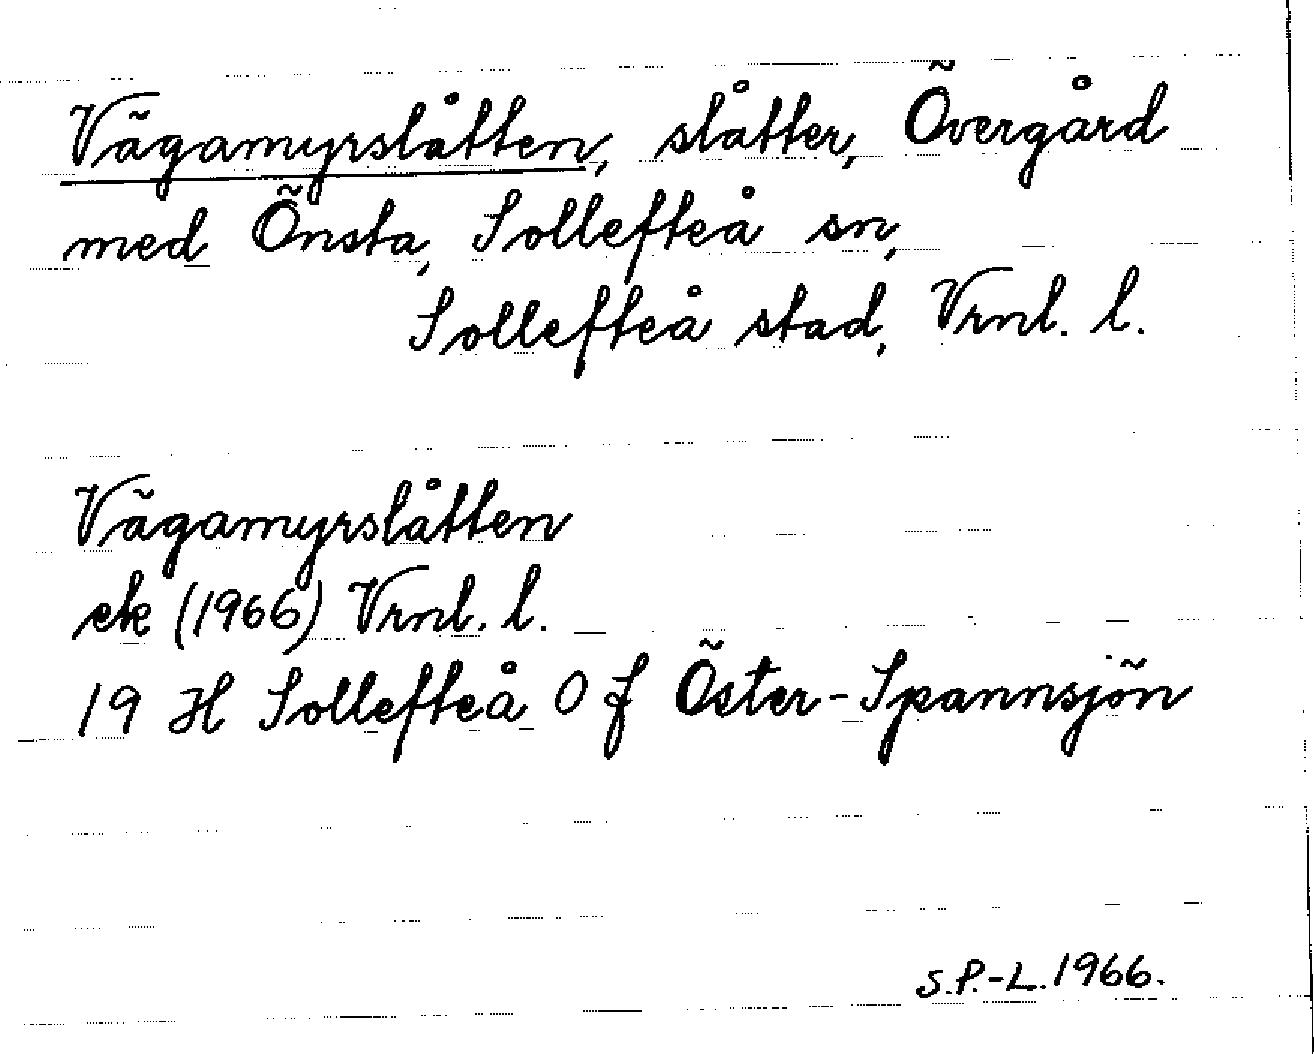 Vägamyrslåtten, slåtter, Övergård
med Önsta, Sollefteå sn,
Sollefteå stad, Vrnl. l.
Vägamyrslåtten
ek (1966) Vrnl. l.
19 H Sollefteå O f Öster-Spannsjön
S.P.-L. 1966.